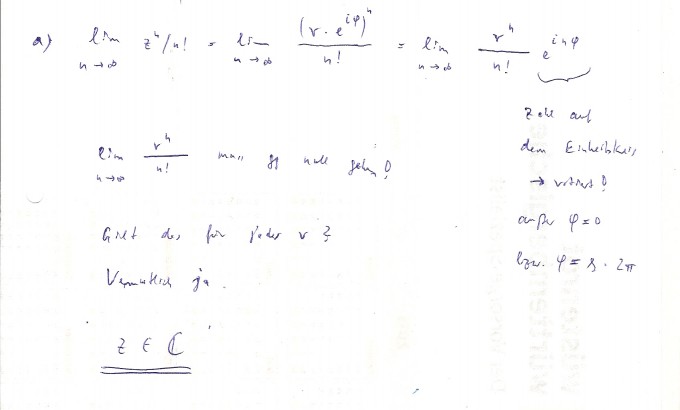 a) lim n→∞ z^n/n! = lim n→∞ (r · e^{iφ})^n / n! = lim n→∞ r^n / n! e^{inφ}
Zahl auf
dem Einheitskreis
→ rotiert!
außer φ=0
bzw. φ = k · 2π
lim n→∞ r^n / n! muss gg null gehen!
Gilt das für jedes r?
Vermutlich ja.
z ∈ ℂ